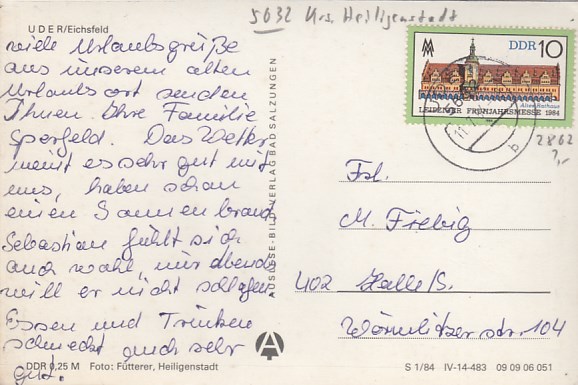 5632 Krs. Heiligenstadt
UDER/Eichsfeld
viele Urlaubsgrüße
aus unserem alten
Urlaubsort senden
Ihnen Ihre Familie
Sperfeld. Das Wetter
meint es sehr gut mit
uns, haben schon
einen Sonnenbrand
Sebastian fühlt sich
auch wohl, nur abends
will er nicht schlafen
Essen und Trinken
schmeckt auch sehr
gut.
DDR 0,25 M Foto: Fütterer, Heiligenstadt
AUSLESE-BILD-VERLAG BAD SALZUNGEN
A
DDR 10
Altes Rathaus
LEIPZIGER FRÜHJAHRSMESSE 1984
b
2862
?,-
Frl.
M. Fiebig
402 Halle/S.
Wörmlitzer str. 104
S 1/84 IV-14-483 09 09 06 051